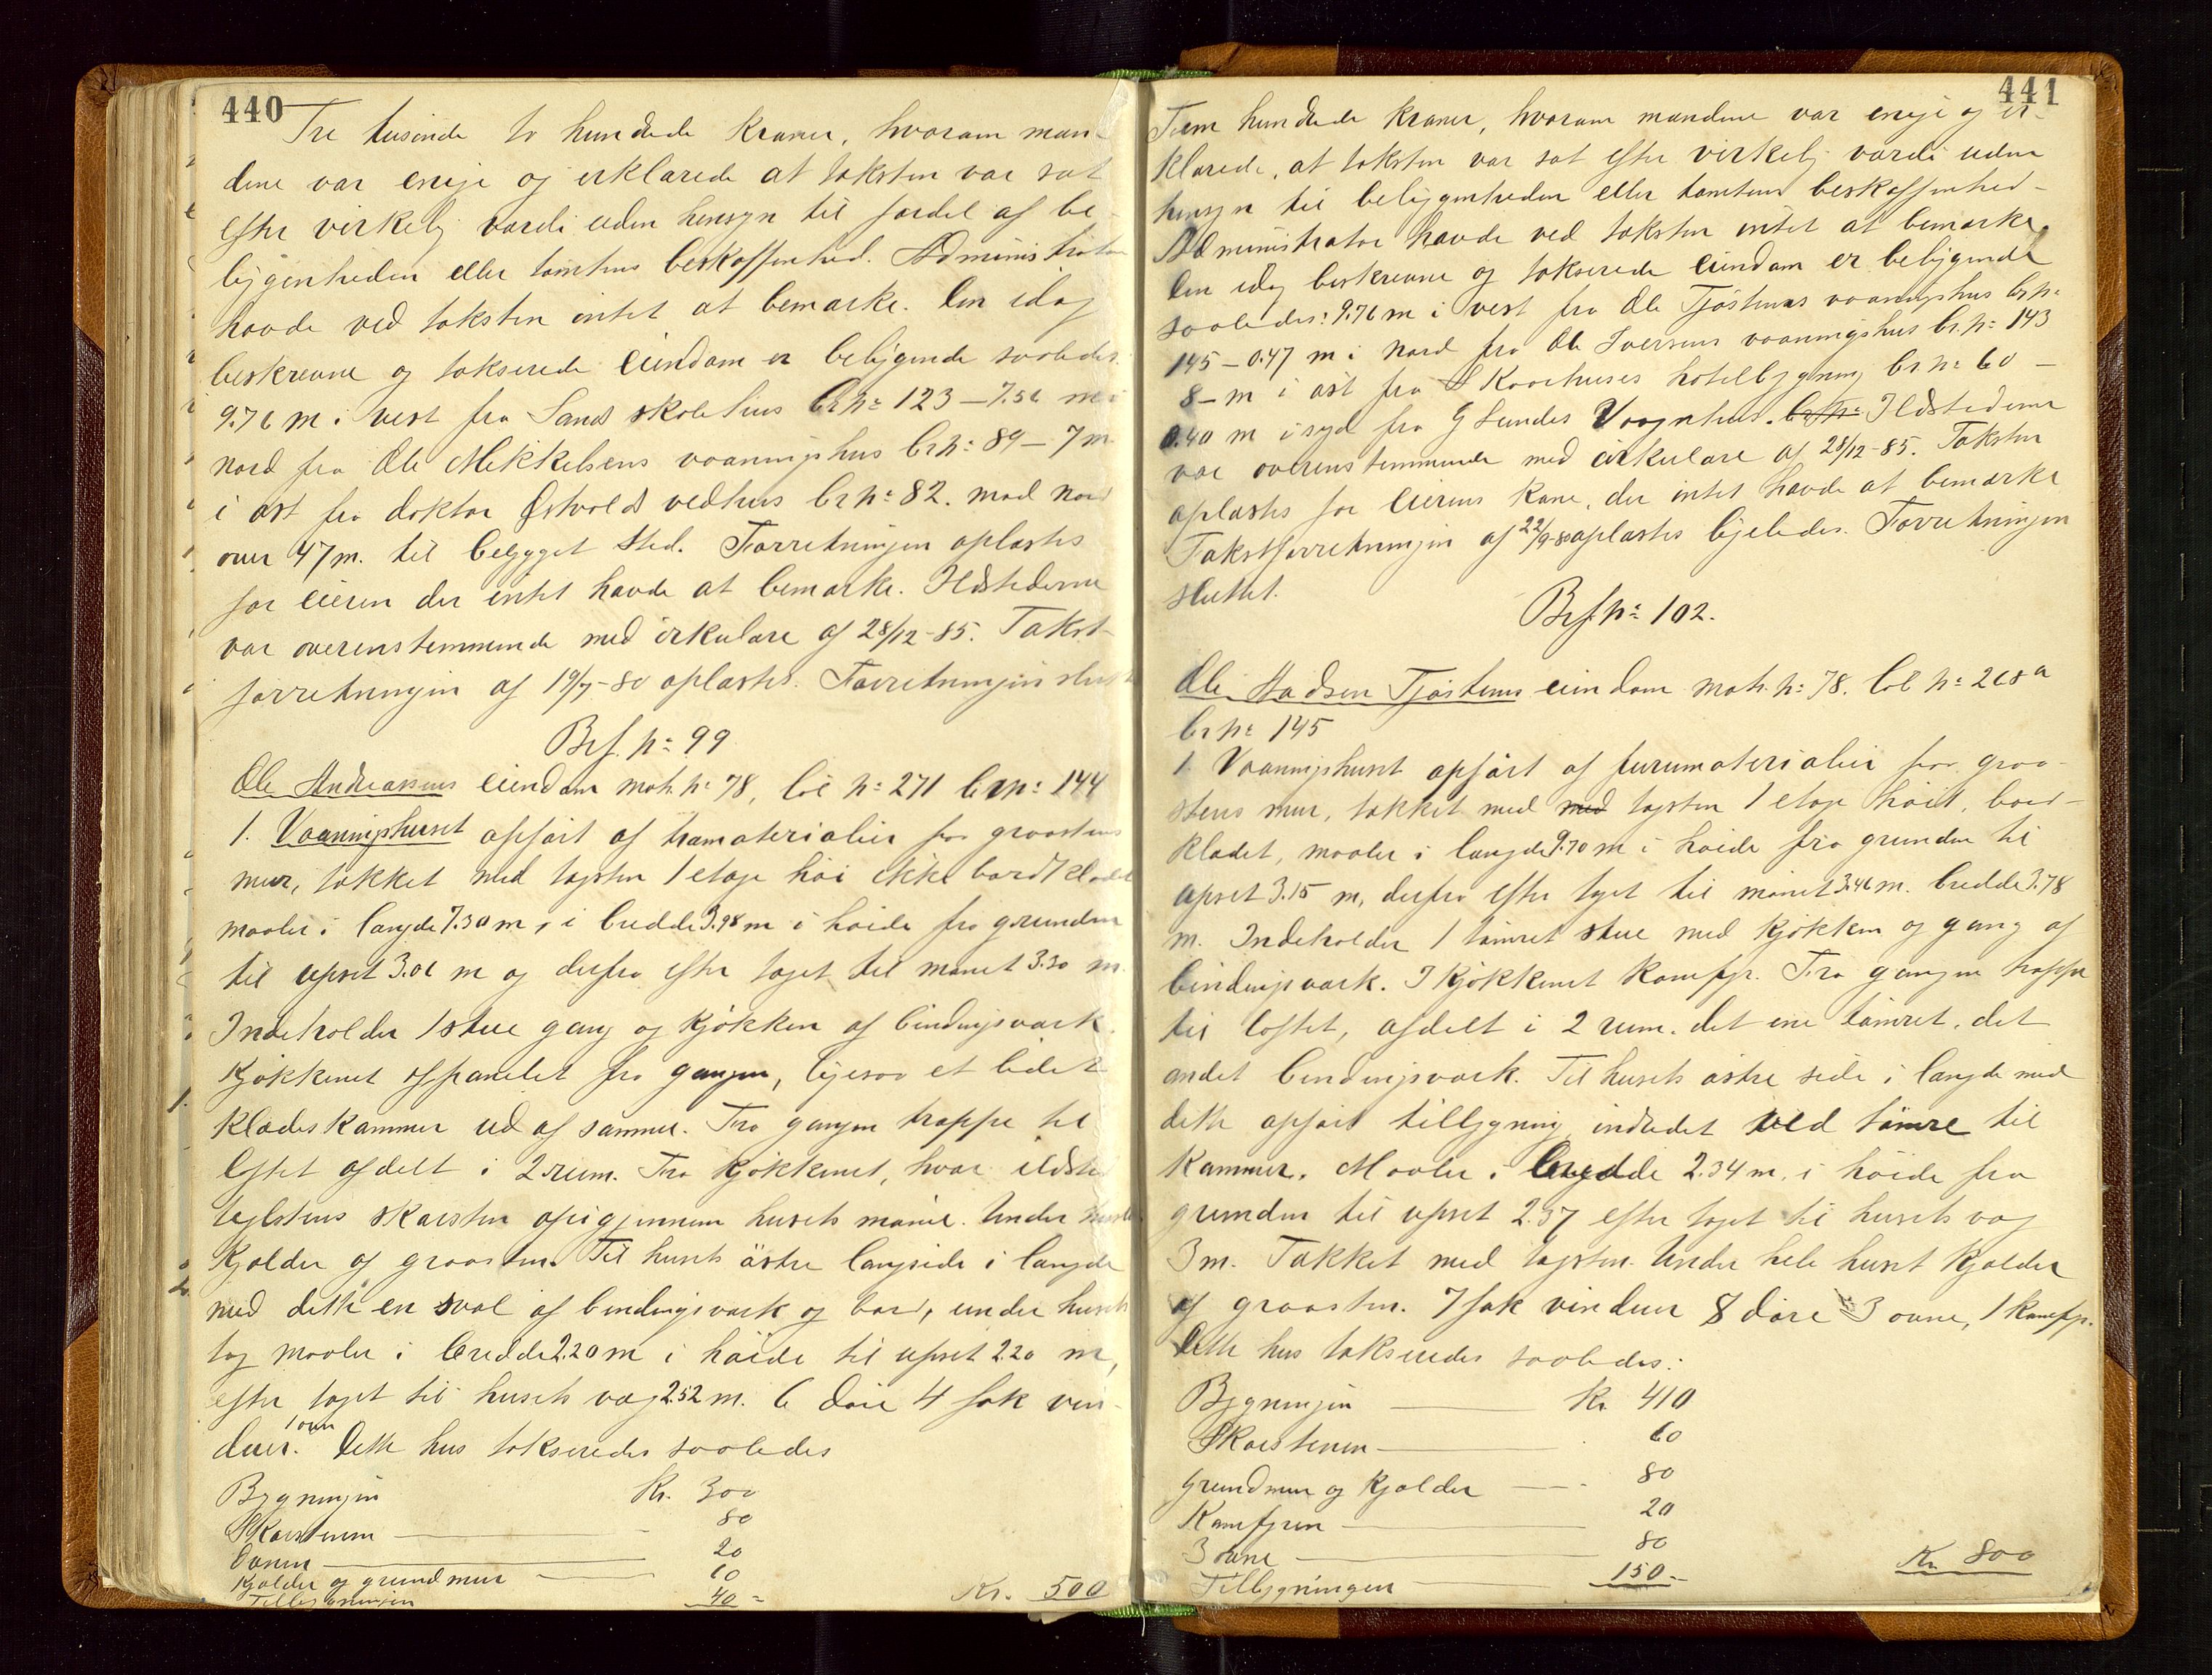 440
Tre tusinde to hundrede kroner, hvorom mæn-
dene var enige og erklærede at taksten var sat
efter virkelig værdi uden hensyn til fordel af be-
liggenheden eller tomtens beskaffenhed. Administrator
havde ved taksten intet at bemærke. Den idag
beskrevne og takserede eiendom er beliggende saaledes
9.76 m i vest fra Sands skolehus br nº 123 – 7.56 m i
nord fra Ole Mikkelsens vaaningshus br nº 89 – 7 m
i øst fra doktor Østvolds vedhus br nº 82. mod nord
over 47 m. til bebygget sted. Forretningen oplæstes
for eieren der intet havde at bemærke. Ildstederne
var overenstemmende med cirkulære af 28/12-85. Takst-
forretningen af 19/7-80 oplæstes. Forretningen sluttet
Brf. nº 99
Ole Andreassens eiendom matr. nº 78, løb nº 271 br nº 144
1. Vaaningshuset opført af træmaterialier paa graastens
mur, tækket med tagsten 1 etage høi ikke bordklædet
maaler i længde 7.30 m, i bredde 3.98 m i høide fra grunden
til opset 3.06 m og derfra efter taget til mønet 3.30 m.
Indeholder 1 stue gang og kjøkken af bindingsværk.
Kjøkkenet afpanelet fra gangen, ligesaa et lidet
klædeskammer ud af samme. Fra gangen trappe til
loftet afdelt i 2 rum. Fra kjøkkenet, hvor ildsted
teglstens skorsten op igjennem husets møne. Under huset
kjælder af graasten. Til husets østre langside i længde
med dette en sval af bindingsværk og bord, under husets
tag maaler i bredde 2.20 m i høide til opset 2.20 m,
efter taget til husets væg 2.52 m. 6 døre 4 fak vin-
duer. 1 ovn Dette hus takseredes saaledes
Bygningen Kr. 300
Skorstenen 80
Ovnen 20
Kjælder og grundmur 60
Tilbygningen 40 = Kr. 500
441
Fem hundrede kroner, hvorom mændene var enige og er-
klærede, at taksten var sat efter virkelig værdi uden
hensyn til beliggenheden eller tomtens beskaffenhed –
Administrator havde ved taksten intet at bemærke
Den idag beskrevne og takserede eiendom er beliggende
saaledes: 9.76 m i vest fra Ole Tjøstems vaaningshus br nº
145 – 0.47 m i nord fra Ole Iversens vaaningshus br. nº 143
8 – m i øst fra S Kaarhuses hotelbygning br. nº 60 –
0.40 m i syd fra G Lundes Vognhus. br nº Ildstederne
var overenstemmende med cirkulære af 28/12-85. Taksten
oplæstes for eierens kone, der intet havde at bemærke
Takstforretningen af 22/9-80 oplæstes ligeledes. Forretningen
sluttet.
Brf. nº 102.
Ole Hadsen Tjøstems eiendom matr. nº 78. løb nº 268 a
br nº 145
1. Vaaningshuset opført af furumaterialier paa graa-
stens mur, tækket med med tagsten 1 etage høit, bord-
klædet, maaler i længde 9.70 m i høide fra grunden til
opset 3.15 m, derfra efter taget til mønet 3.46 m. bredde 3.78
m. Indeholder 1 tømret stue med kjøkken og gang af
bindingsværk. I kjøkkenet komfyr. Fra gangen trappe
til loftet, afdelt i 2 rum. det ene tømret. det
andet bindingsværk. Til husets østre side i længde med
dette opført tilbygning, indredet ved tømre til
kammer. Maaler i bredde 2.34 m. i høide fra
grunden til opset 2.57 efter taget til husets væg
3 m. Tækket med tagsten. Under hele huset kjælder
af graasten. 7 fak vinduer 8 døre 3 ovne, 1 komfyr.
Dette hus takseredes saaledes:
Bygningen Kr 410
Skorstenen 60
Grundmur og kjælder 80
Komfyren 20
3 ovne 80
Tilbygningen 150 – Kr 800